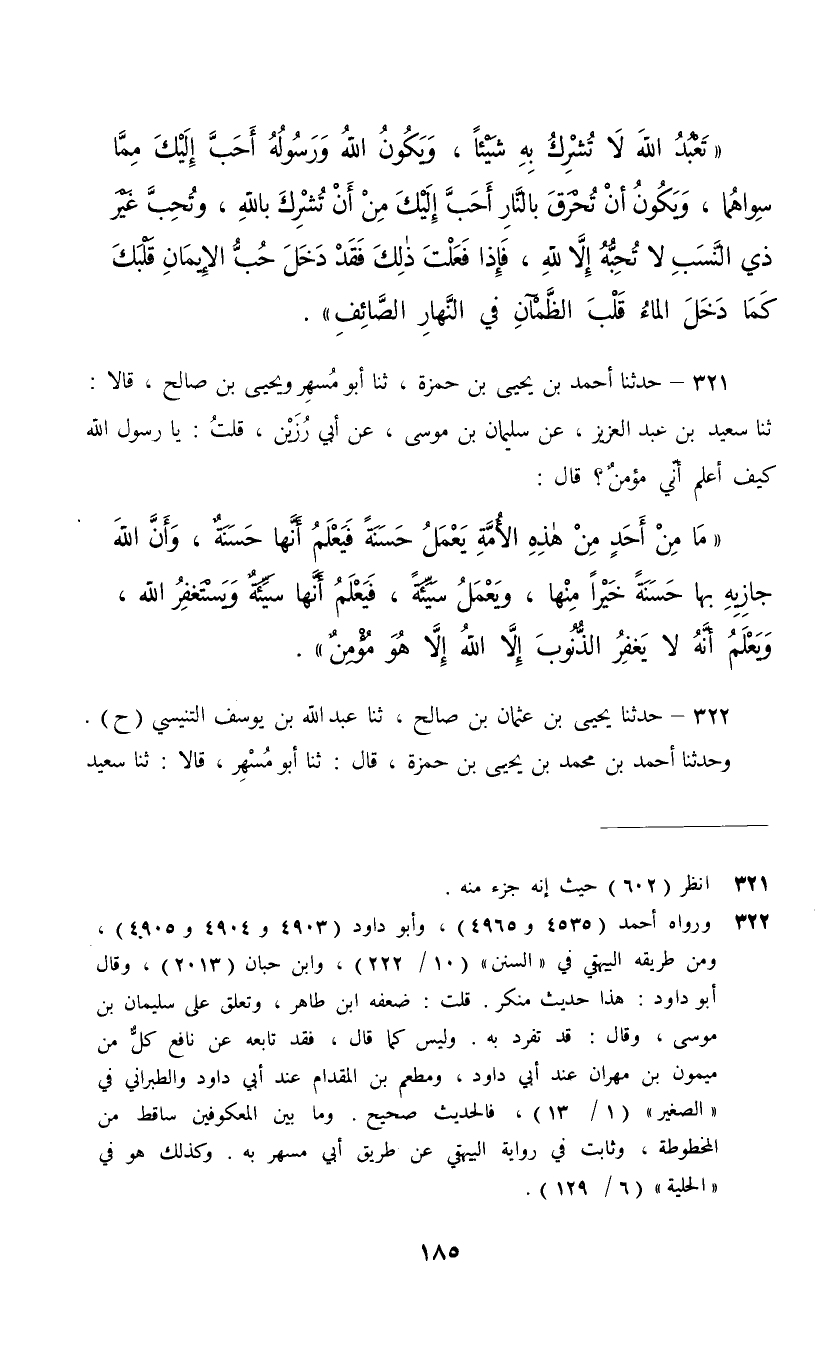 « تَعْبُدُ اللهَ لَا تُشْرِكُ بِهِ شَيْئاً ، وَيَكُونُ اللهُ وَرَسُولُهُ أَحَبَّ إِلَيْكَ مِمَّا
سِواهُما ، وَيَكُونُ أنْ تُحْرَقَ بالنَّارِ أَحَبَّ إِلَيْكَ مِنْ أَنْ تُشْرِكَ باللهِ ، وتُحِبَّ غَيْرَ
ذي النَّسَبِ لا تُحِبُّهُ إِلَّا للهِ ، فَإِذا فَعَلْتَ ذٰلِكَ فَقَدْ دَخَلَ حُبُّ الإِيمَانِ قَلْبَكَ
كَمَا دَخَلَ الماءُ قَلْبَ الظَّمْآنِ في النَّهارِ الصَّائِفِ» .
٣٢١ – حدثنا أحمد بن يحيى بن حمزة ، ثنا أبو مُسهِر ويحيى بن صالح ، قالا :
ثنا سعيد بن عبد العزيز ، عن سليمان بن موسى ، عن أبي رُزَيْن ، قلتُ : يا رسول الله
كيف أعلم أنّي مؤمنٌ؟ قال :
« مَا مِنْ أَحَدٍ مِنْ هٰذِهِ الأُمَّةِ يَعْمَلُ حَسَنَةً فَيَعْلَمُ أَنَّها حَسَنَةٌ ، وَأَنَّ اللهَ
جازِيِهِ بها حَسَنَةً خَيْراً مِنْها ، ويَعْمَلُ سَيِّئَةً ، فَيَعْلَمُ أَنَّها سَيِّئَةٌ وَيَسْتَغفِرُ الله ،
وَيَعْلَمُ أَنَّهُ لا يَغفِرُ الذُّنُوبَ إلَّا اللهُ إِلَّا هُوَ مُؤْمِنٌ» .
٣٢٢ – حدثنا يحيى بن عثمان بن صالح ، ثنا عبد الله بن يوسف التنيسي (ح) .
وحدثنا أحمد بن محمد بن يحيى بن حمزة ، قال : ثنا أبو مُسْهِر ، قالا : ثنا سعيد
٣٢١ انظر (٦٠٢) حيث إنه جزء منه .
٣٢٢ ورواه أحمد (٤٥٣٥ و ٤٩٦٥) ، وأبو داود (٤٩٠٣ و ٤٩٠٤ و ٤٩٠٥) ،
ومن طريقه البيهقي في «السنن» (١٠ / ٢٢٢) ، وابن حبان (٢٠١٣) ، وقال
أبو داود : هذا حديث منكر . قلت : ضعفه ابن طاهر ، وتعلق على سليمان بن
موسى ، وقال : قد تفرد به . وليس كما قال ، فقد تابعه عن نافع كلٌّ من
ميمون بن مهران عند أبي داود ، ومطعم بن المقدام عند أبي داود والطبراني في
«الصغير» (١ / ١٣) ، فالحديث صحيح . وما بين المعكوفين ساقط من
المخطوطة ، وثابت في رواية البيهقي عن طريق أبي مسهر به . وكذلك هو في
«الحلية» (٦ / ١٢٩) .
١٨٥